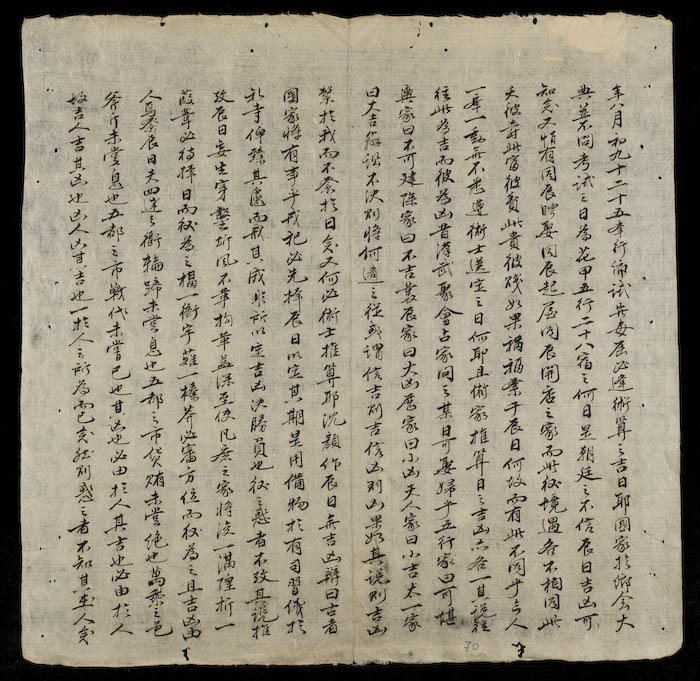 年八月初九十二十五奉行鄉試豈每屆必逢術算之吉日耶國家於鄉會大
典並不問考試之日為花甲五行二十八宿之何日是朝廷之不信辰日吉凶可
知矣又有同辰聘娶同辰起屋同辰開店之家而此彼境遇各不相同此
夭彼壽此富彼貧此貴彼賤如果禍福繫于辰日何故而有此不同乎今人
一舉一動無不悉遵術士選定之日何耶且術家推算日之吉凶亦各一其說往
往此為吉而彼為凶昔漢武聚會占家問之某日可娶婦乎五行家曰可堪
輿家曰不可建除家曰不吉叢辰家曰大凶曆家曰小凶天人家曰小吉太一家
曰大吉辯訟不決則將何適之從或謂信吉則吉信凶則凶果如其說則吉凶
繫於我而不系於日矣又何必術士推算耶沈顏作辰日無吉凶辨曰古者
國家將有事乎戎祀必先擇辰日以定其期是用備物於有司習儀於
礼寺俾臻其慮而戒其成非所以定吉凶決勝負也後之惑者不攷其說推
攷辰日妄生穿鑿斯風不革拘華益深至使凡庶之家將浚一湟隍折一
葭葦必待擇日而後為之構一衡宇薙一榛莽必審方位而後為之且吉凶由
人焉系辰日夫四達之衢輪蹄未嘗息也五都之市貨賄未嘗絕也萬乘之邑
斧斤未嘗息也五都之市戰伐未嘗已也其凶也必由於人其吉也必由於人
故吉人吉其凶也凶人凶其吉也一於人之所為而已矣然則惑之者不知其無人矣
70